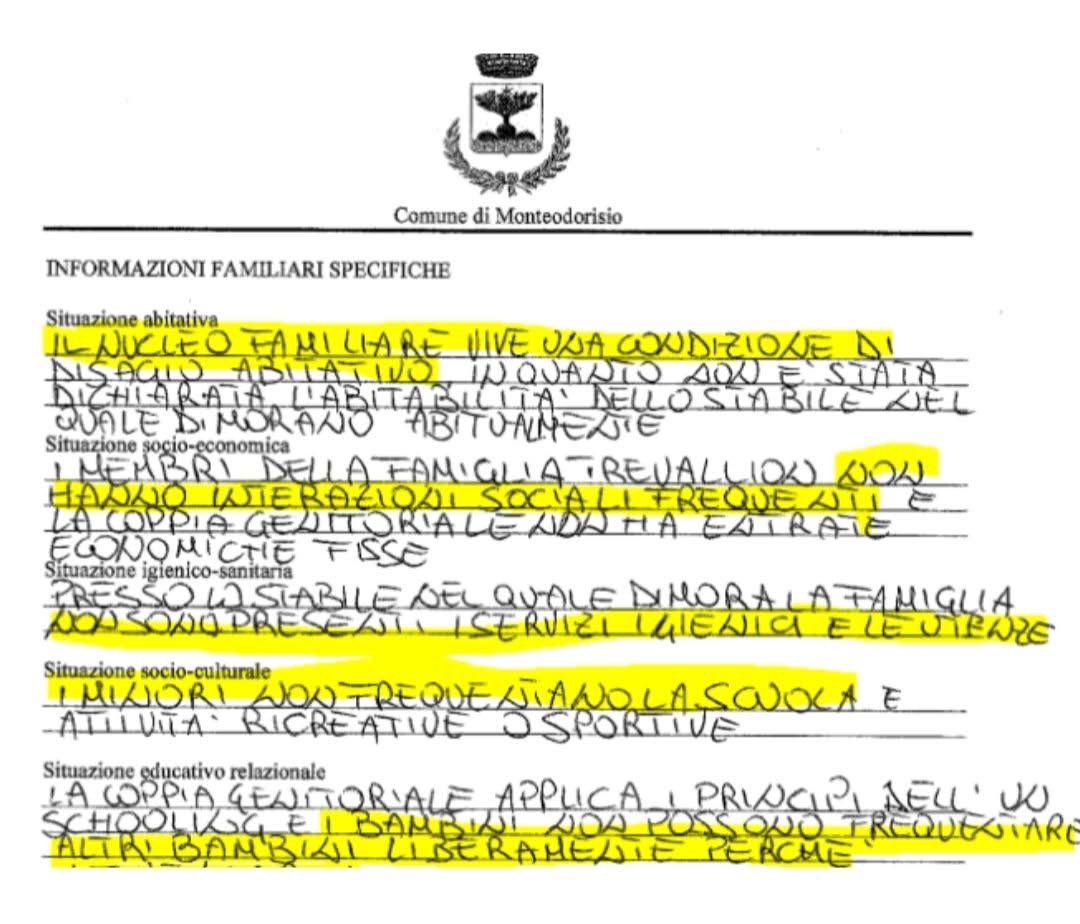 Comune di Monteodorisio
INFORMAZIONI FAMILIARI SPECIFICHE
Situazione abitativa
IL NUCLEO FAMILIARE VIVE UNA CONDIZIONE DI
DISAGIO ABITATIVO, IN QUANTO NON E' STATA
DICHIARATA L'ABITABILITA' DELLO STABILE NEL
QUALE DIMORANO ABITUALMENTE
Situazione socio-economica
I MEMBRI DELLA FAMIGLIA TREVALLION NON
HANNO INTERAZIONI SOCIALI FREQUENTI E
LA COPPIA GENITORIALE NON HA ENTRATE
ECONOMICHE FISSE
Situazione igienico-sanitaria
PRESSO LO STABILE NEL QUALE DIMORA LA FAMIGLIA
NON SONO PRESENTI I SERVIZI IGIENICI E LE UTENZE
Situazione socio-culturale
I MINORI NON FREQUENTANO LA SCUOLA E
ATTIVITA' RICREATIVE O SPORTIVE
Situazione educativo relazionale
LA COPPIA GENITORIALE APPLICA I PRINCIPI DELL' UN
SCHOOLING E I BAMBINI NON POSSONO FREQUENTARE
ALTRI BAMBINI LIBERAMENTE PERCHE'